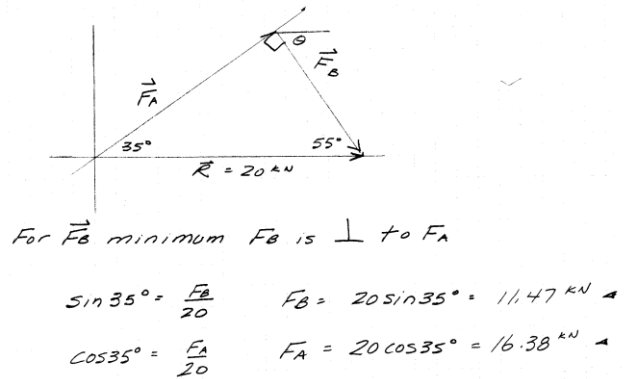 θ
F⃗_A
F⃗_B
35°
55°
R⃗ = 20 kN
For F⃗_B minimum F_B is ⊥ to F_A
sin 35° = F_B/20 F_B = 20 sin 35° = 11.47 kN ◄
cos 35° = F_A/20 F_A = 20 cos 35° = 16.38 kN ◄